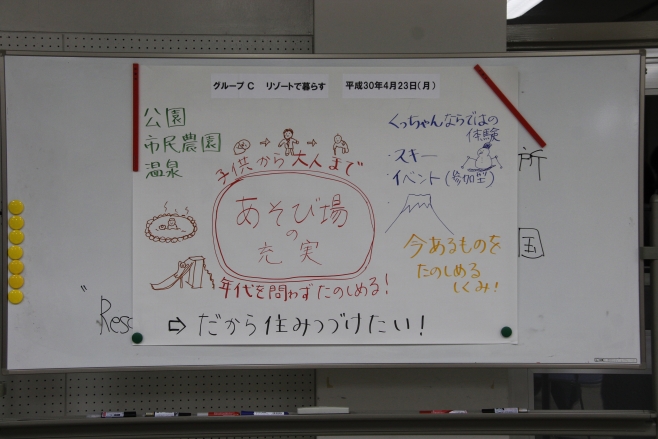 グループC　リゾートで暮らす　平成30年4月23日(月)
公園
市民農園
温泉
子供から大人まで
あそび場
の
充実
年代を問わずたのしめる!
くっちゃんならではの
体験
・スキー
・イベント(参加型)
今あるものを
たのしめる
しくみ!
⇨ だから住みつづけたい!
所
国
"Reso